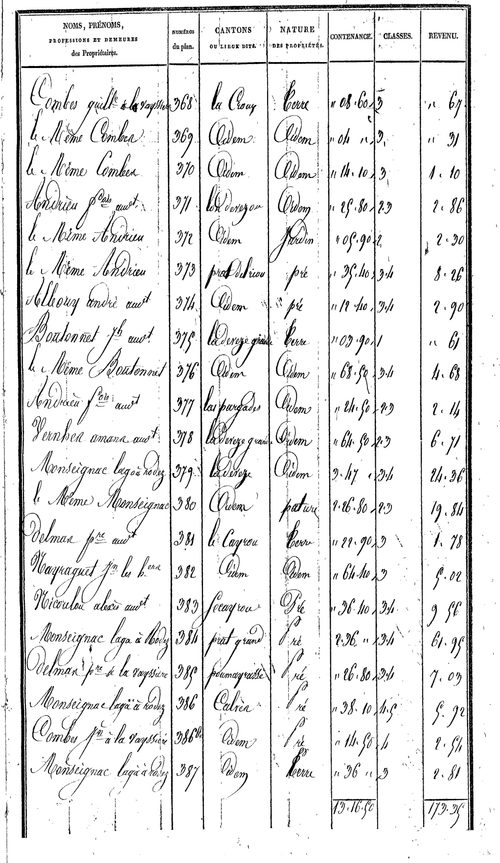 NOMS, PRÉNOMS, PROFESSIONS ET DEMEURES des Propriétaires. NUMÉROS du plan. CANTONS OU LIEUX DITS. NATURE DES PROPRIÉTÉS. CONTENANCE. CLASSES. REVENU.
Combes guill^e à la vayssiere 368 la Crouz Terre " 08.60 3 " 67
le Même Combes 369 Idem Idem " 04 " 3 " 31
le Même Combes 370 Idem Idem " 14.10 3 1.10
Andrieu f^cois aust 371 Idem " 25.80 2.3 2.86
le Même Andrieu 372 Idem Jardin " 05.90 2 2.30
le Même Andrieu 373 prat del riou pré " 35.40 3.4 8.26
Albouy andré aust 374 Idem pré " 12.40 3.4 2.90
Boutonnet J^h aust 375 la deveze grande Terre " 03.90 1 " 61
le Même Boutonnet 376 Idem Idem " 68.50 3.4 4.68
Andrieu f^cois aust 377 las pargades Idem " 24.50 2.3 2.14
Vernhes amans aust 378 la deveze grande Idem " 64.50 2.3 6.71
Monseignac laga à rodez 379 la deveze Idem 3.47 " 3.4 24.36
le Même Monseignac 380 Idem pature 2.26.80 2.3 19.84
Delmas p^re aust 381 le Cayrou Terre " 22.90 3 1.78
Mayraguet J^n les h^ers 382 Idem Idem " 64.40 3 5.02
Nicoulou alexis aust 383 Lecayrou Pré " 36.40 3.4 9.56
Monseignac laga à Rodez 384 prat grand Pré 2.36 " 3.4 61.95
Delmas p^re à la vayssiere 385 poumayrassé Pré " 26.80 3.4 7.03
Monseignac laga à rodez 386 Calvés Pré " 38.10 4.5 5.92
Combes J^n à la vayssiere 386^bis Idem Pré " 14.50 4 2.54
Monseignac laga à rodez 387 Idem Terre " 36 " 3 2.81
13.16.50 173.35